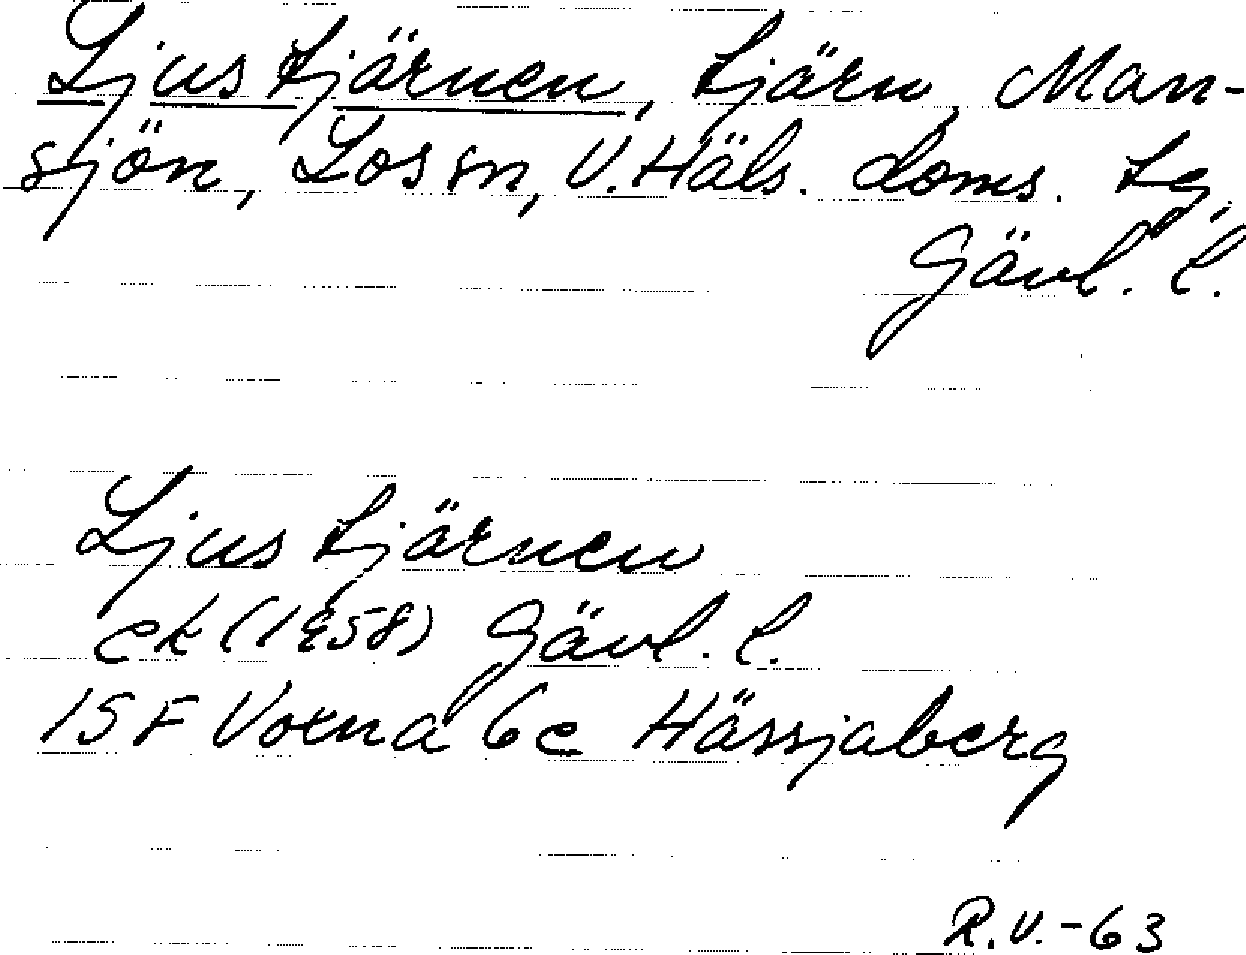 Ljustjärnen, tjärn, Man-
sjön, Los sn, V. Häls. doms. Lg,
Gävl. l.
Ljustjärnen
ek (1958) Gävl. l.
15F Voxna 6e Hässjaberg
R.V.-63